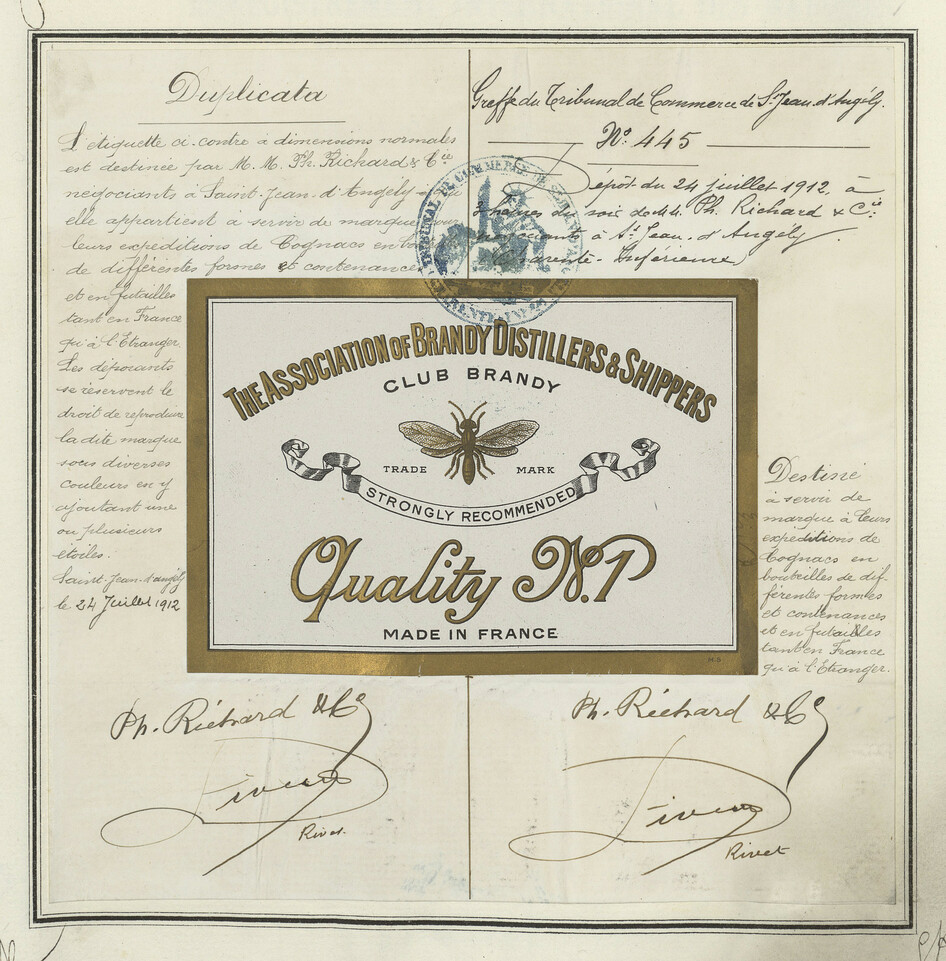 Duplicata
L'étiquette ci-contre à dimensions normales
est destinée par M. M. Ph. Richard & Cie
négociants à Saint-Jean-d'Angély
elle appartient à servir de marque pour
leurs expéditions de Cognacs en
de différentes formes et contenances
et en futailles
tant en France
qu'à l'Etranger.
Les déposants
se réservent le
droit de reproduire
la dite marque
sous diverses
couleurs en y
ajoutant une
ou plusieurs
étoiles.
Saint-Jean-d'Angély
le 24 Juillet 1912
Greffe du Tribunal de Commerce de St Jean d'Angély.
No. 445
Dépôt du 24 juillet 1912 à
3 heures du soir Ph. Richard & Cie
à St Jean d'Angély
Charente Inférieure
TRIBUNAL DE COMMERCE DE
THE ASSOCIATION OF BRANDY DISTILLERS & SHIPPERS
CLUB BRANDY
TRADE MARK
STRONGLY RECOMMENDED
Quality No. 1
MADE IN FRANCE
Destiné
à servir de
marque à leurs
expéditions de
Cognacs en
bouteilles de dif-
férentes formes
et contenances
et en futailles
tant en France
qu'à l'Etranger.
Ph. Richard & Co
Rivet
Ph. Richard & Co
Rivet